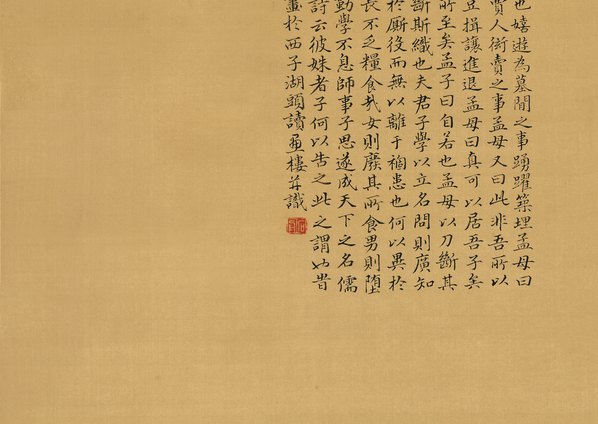 也嬉遊為墓間之事踴躍築埋孟母曰
賈人衒賣之事孟母又曰此非吾所以
豆揖讓進退孟母曰真可以居吾子矣
所至矣孟子曰自若也孟母以刀斷其
斷斯織也夫君子學以立名問則廣知
於廝役而無以離于禍患也何以異於
長不乏糧食哉女則廢其所食男則墮
勤學不息師事子思遂成天下之名儒
詩云彼姝者子何以告之此之謂也昔
畫於西子湖頭讀畫樓并識